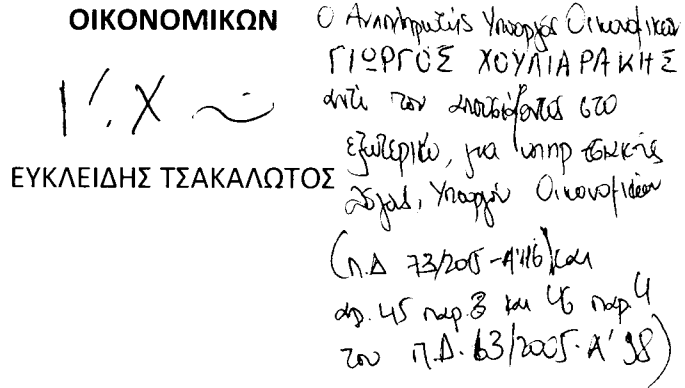 ΟΙΚΟΝΟΜΙΚΩΝ
Γ. Χ
ΕΥΚΛΕΙΔΗΣ ΤΣΑΚΑΛΩΤΟΣ
Ο Αναπληρωτής Υπουργός Οικονομικών
ΓΙΩΡΓΟΣ ΧΟΥΛΙΑΡΑΚΗΣ
αντί του απουσιάζοντος στο
εξωτερικό, για υπηρεσιακούς
λόγους, Υπουργού Οικονομικών
(Π.Δ 73/2015-Α'116) και
αρ. 45 παρ. 3 και 46 παρ. 4
του Π.Δ. 63/2005-Α' 98)